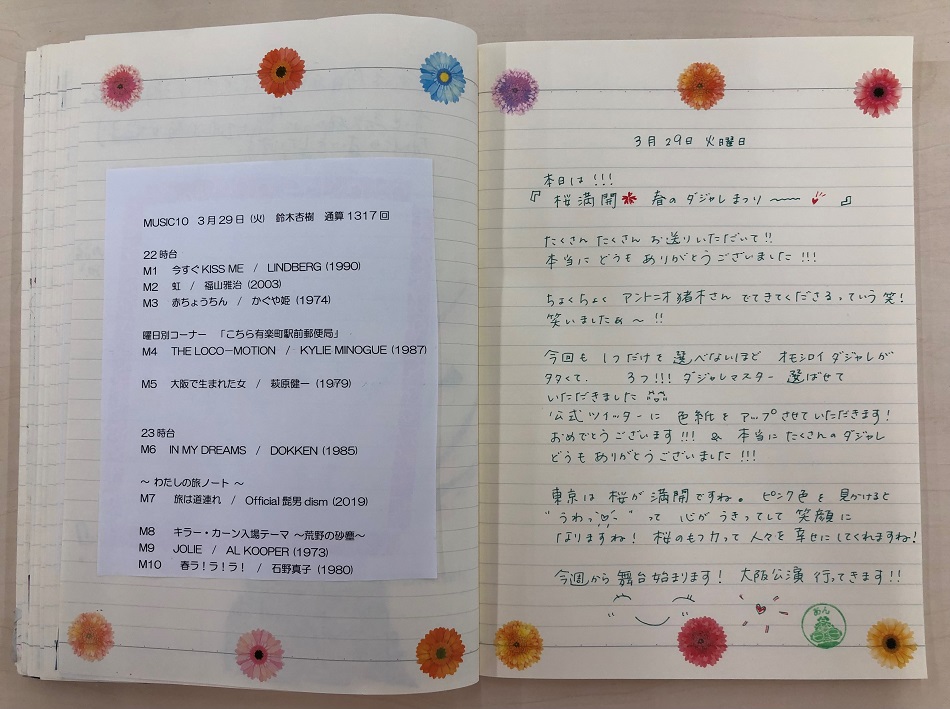 MUSIC10　3月29日（火）　鈴木杏樹　通算1317回
22時台
M1　今すぐKISS ME　/　LINDBERG (1990)
M2　虹　/　福山雅治 (2003)
M3　赤ちょうちん　/　かぐや姫 (1974)
曜日別コーナー　「こちら有楽町駅前郵便局」
M4　THE LOCO－MOTION　/　KYLIE MINOGUE (1987)
M5　大阪で生まれた女　/　萩原健一 (1979)
23時台
M6　IN MY DREAMS　/　DOKKEN (1985)
～ わたしの旅ノート ～
M7　旅は道連れ　/　Official髭男dism (2019)
M8　キラー・カーン入場テーマ ～荒野の砂塵～
M9　JOLIE　/　AL KOOPER (1973)
M10　春ラ！ラ！ラ！　/　石野真子 (1980)
3月29日 火曜日
本日は！！！
『 桜満開 春のダジャレまつり 〜〜 』
たくさん たくさん お送りいただいて!!
本当に どうも ありがとうございました!!!
ちょくちょく アントニオ猪木さん でてきてくださるっていう 笑!
笑いましたぁ〜 !!
今回も 1つだけを 選べないほど オモシロイ ダジャレが
多くて、 3つ!!! ダジャレマスター 選ばせて
いただきました
公式ツイッターに 色紙を アップさせていただきます!
おめでとうございます!!! & 本当に たくさんの ダジャレ
どうも ありがとうございました!!!
東京は 桜が 満開ですね。 ピンク色を 見かけると
"うわっ" って 心が うきってして 笑顔に
なりますね! 桜のもつ力って 人々を 幸せに してくれますね!
今週から 舞台始まります! 大阪公演 行ってきます!!
あん